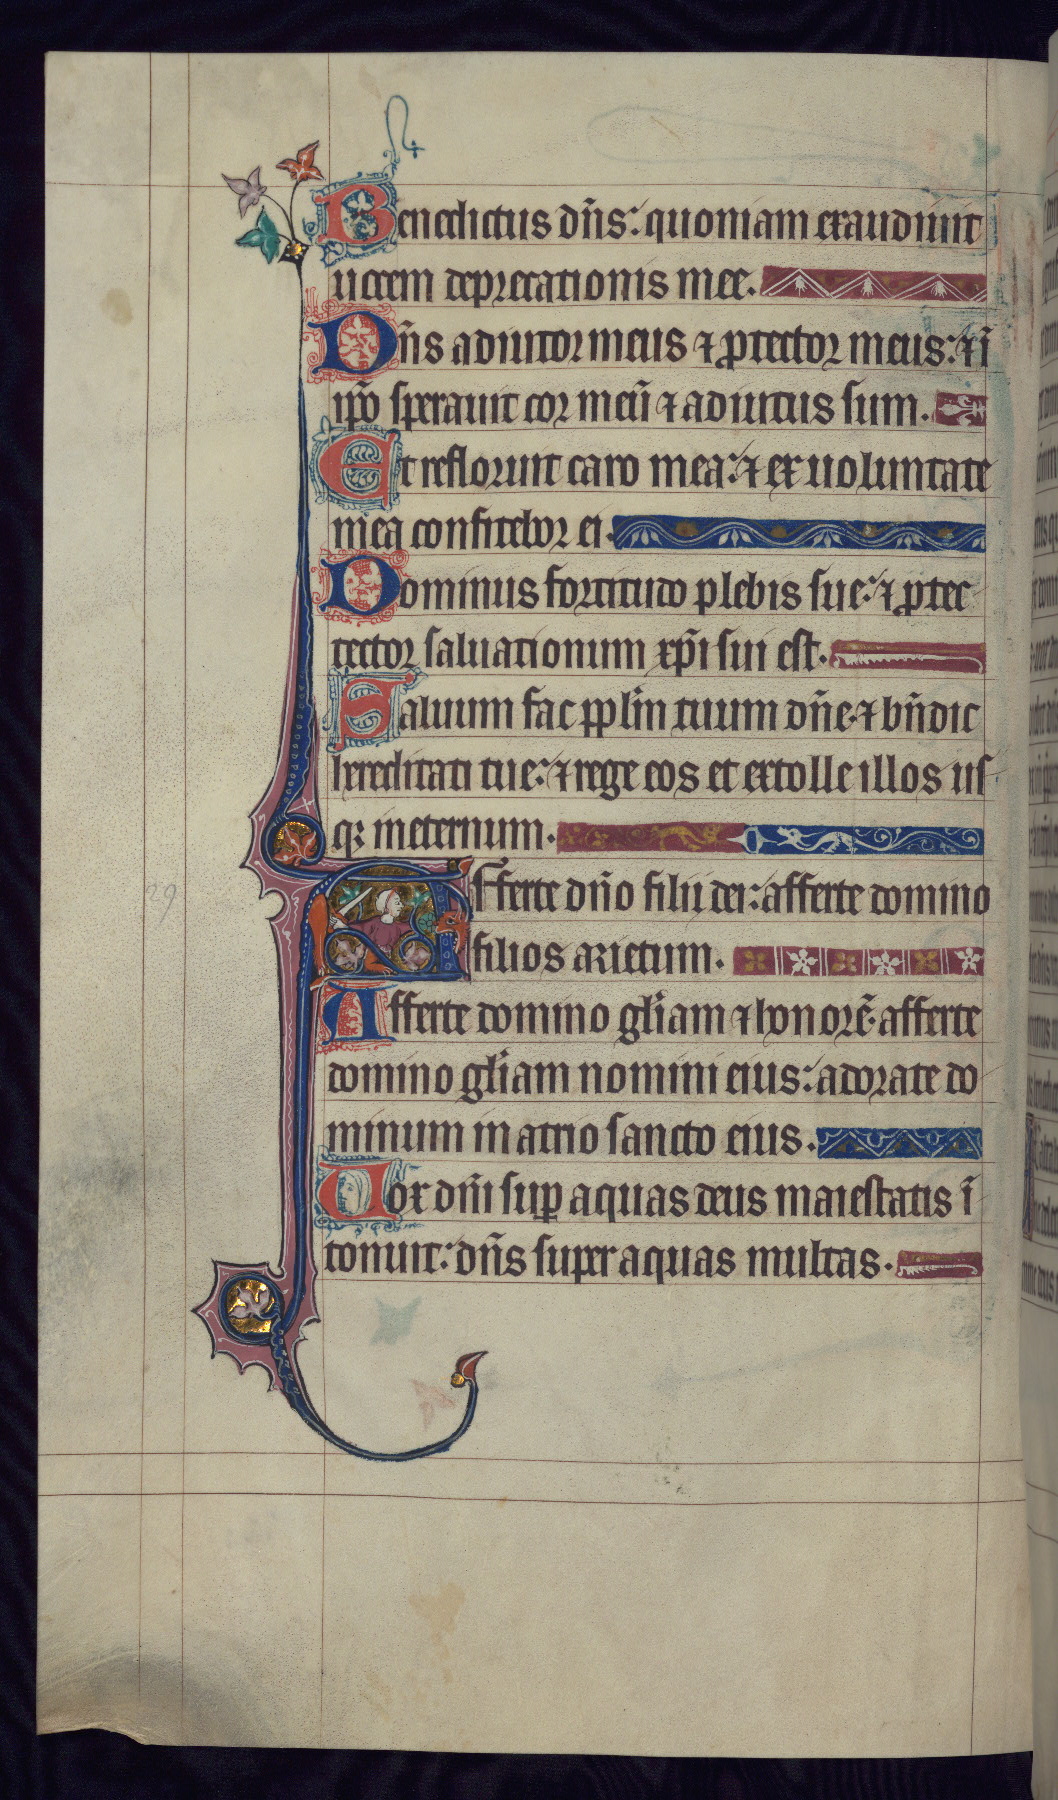 Benedictus dn̄s: quoniam exaudiuit
uocem deprecationis mee.
Dn̄s adiutor meus ⁊ ꝓtector meus: ⁊ ī
ip̄o sperauit cor meū ⁊ adiutus sum.
Et refloruit caro mea: ⁊ ex uoluntate
mea confitebor ei.
Dominus fortitudo plebis sue: ⁊ ꝓtec
tector saluationum xp̄i sui est.
Saluum fac pp̄lm tuum dn̄e ⁊ bn̄dic
hereditati tue: ⁊ rege eos et extolle illos us
qꝫ ineternum.
Afferte dn̄o filij dei: afferte domino
filios arietum.
Afferte domino gl̄iam ⁊ honorē afferte
domino gl̄iam nomini eius: adorate do
minum in atrio sancto eius.
Uox dn̄i suꝑ aquas deus maiestatis ī
tonuit: dn̄s super aquas multas.
29